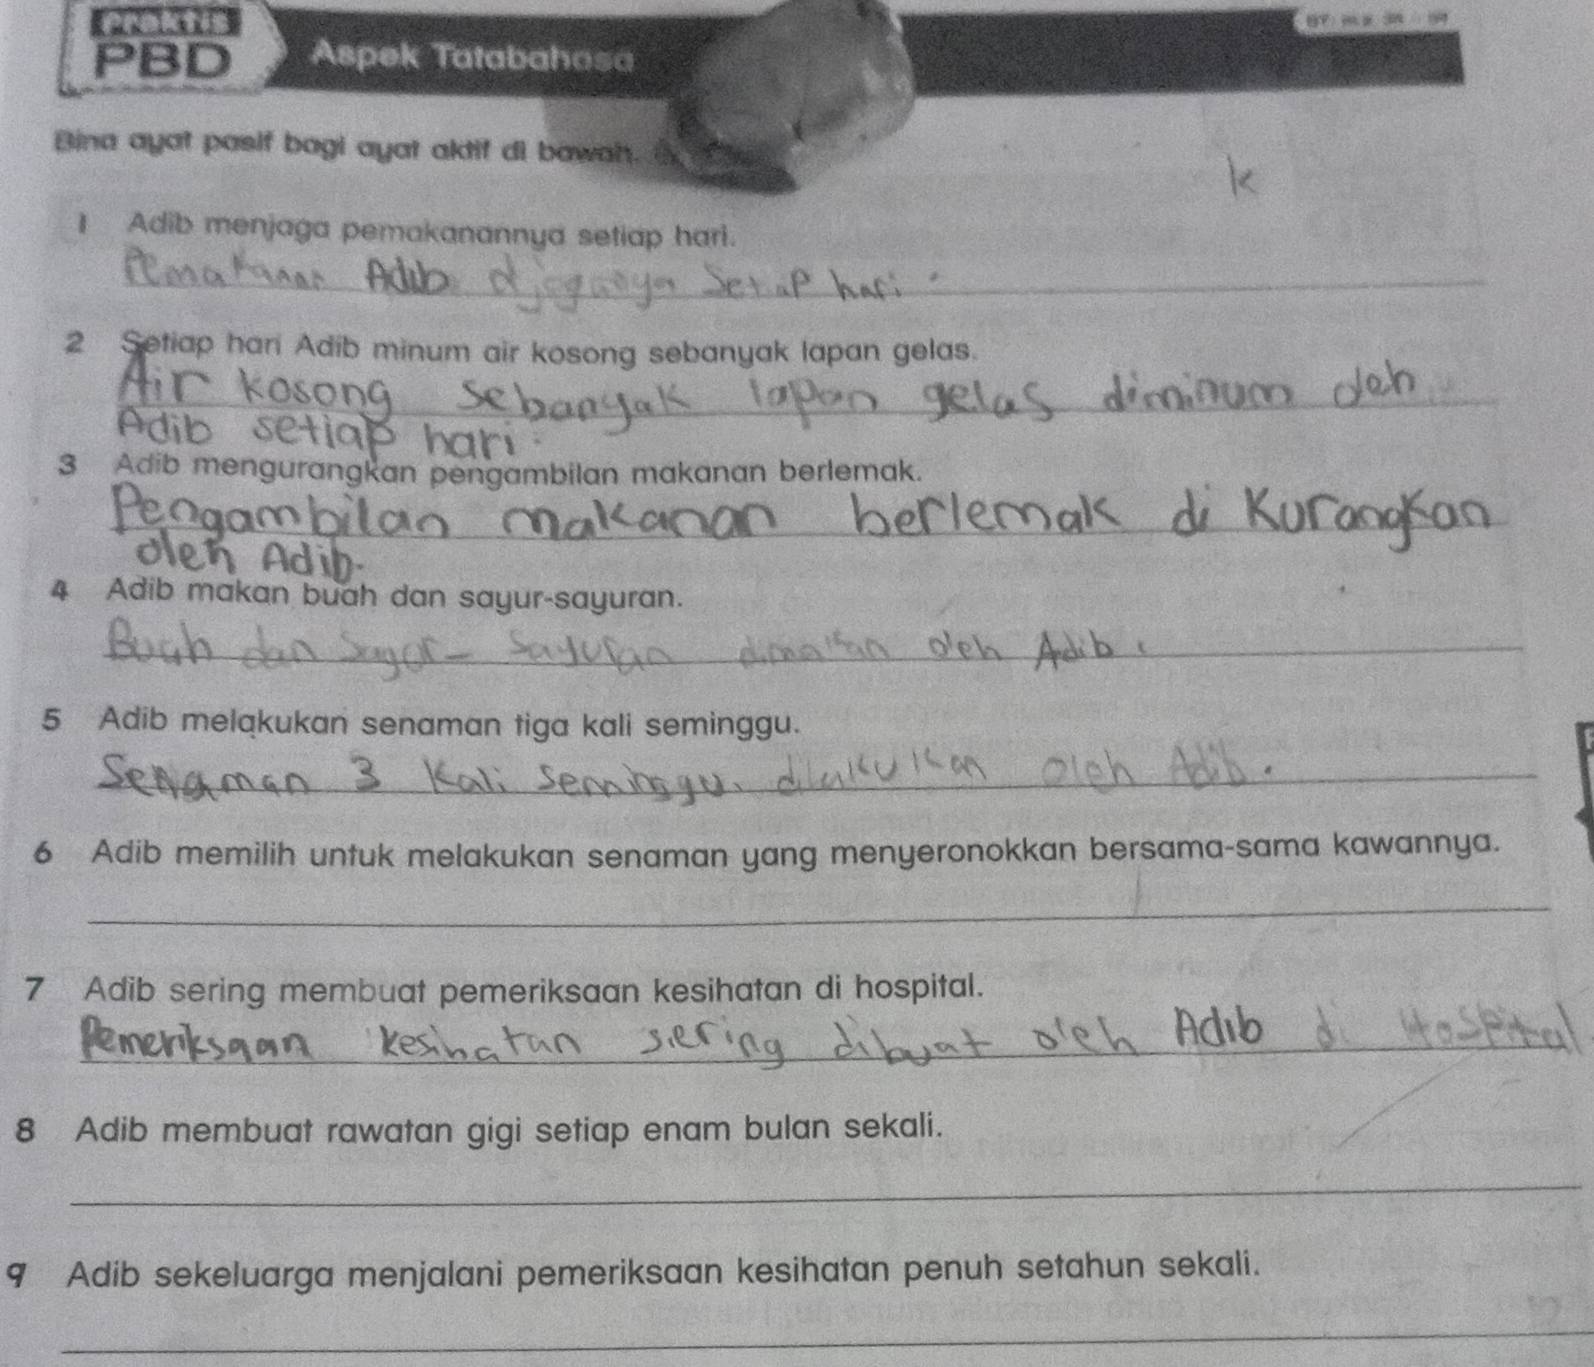 Praktis
PBD
Aspek Tatabahasa
Bina ayat pasif bagi ayat aktif di bawah.
k
1 Adib menjaga pemakanannya setiap hari.
Pemakanan Adib dijaganya Setiap hari.
2 Setiap hari Adib minum air kosong sebanyak lapan gelas.
Air kosong sebanyak lapan gelas diminum oleh
Adib setiap hari.
3 Adib mengurangkan pengambilan makanan berlemak.
Pengambilan makanan berlemak di Kurangkan
oleh Adib.
4 Adib makan buah dan sayur-sayuran.
Buah dan Sayur-Sayuran dimakan oleh Adib.
5 Adib melakukan senaman tiga kali seminggu.
Senaman 3 Kali seminggu dilakukan oleh Adib.
6 Adib memilih untuk melakukan senaman yang menyeronokkan bersama-sama kawannya.
7 Adib sering membuat pemeriksaan kesihatan di hospital.
Pemeriksaan kesihatan siering dibuat oleh Adib di Hospital
8 Adib membuat rawatan gigi setiap enam bulan sekali.
9 Adib sekeluarga menjalani pemeriksaan kesihatan penuh setahun sekali.